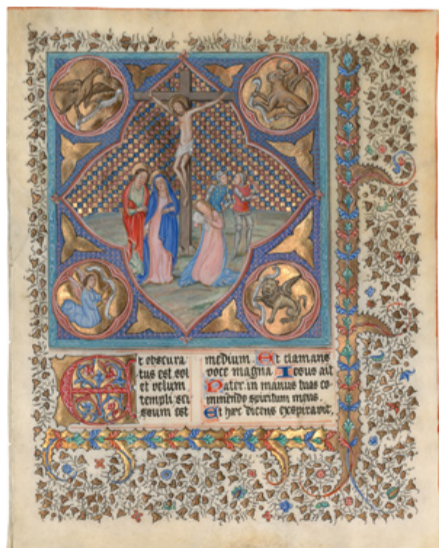 Et obscura
tus est sol
et velum
templi sci
ssum est
medium. Et clamans
voce magna Iesus ait
Pater in manus tuas co
mmendo spiritum meus.
Et hæc dicens expiravit,